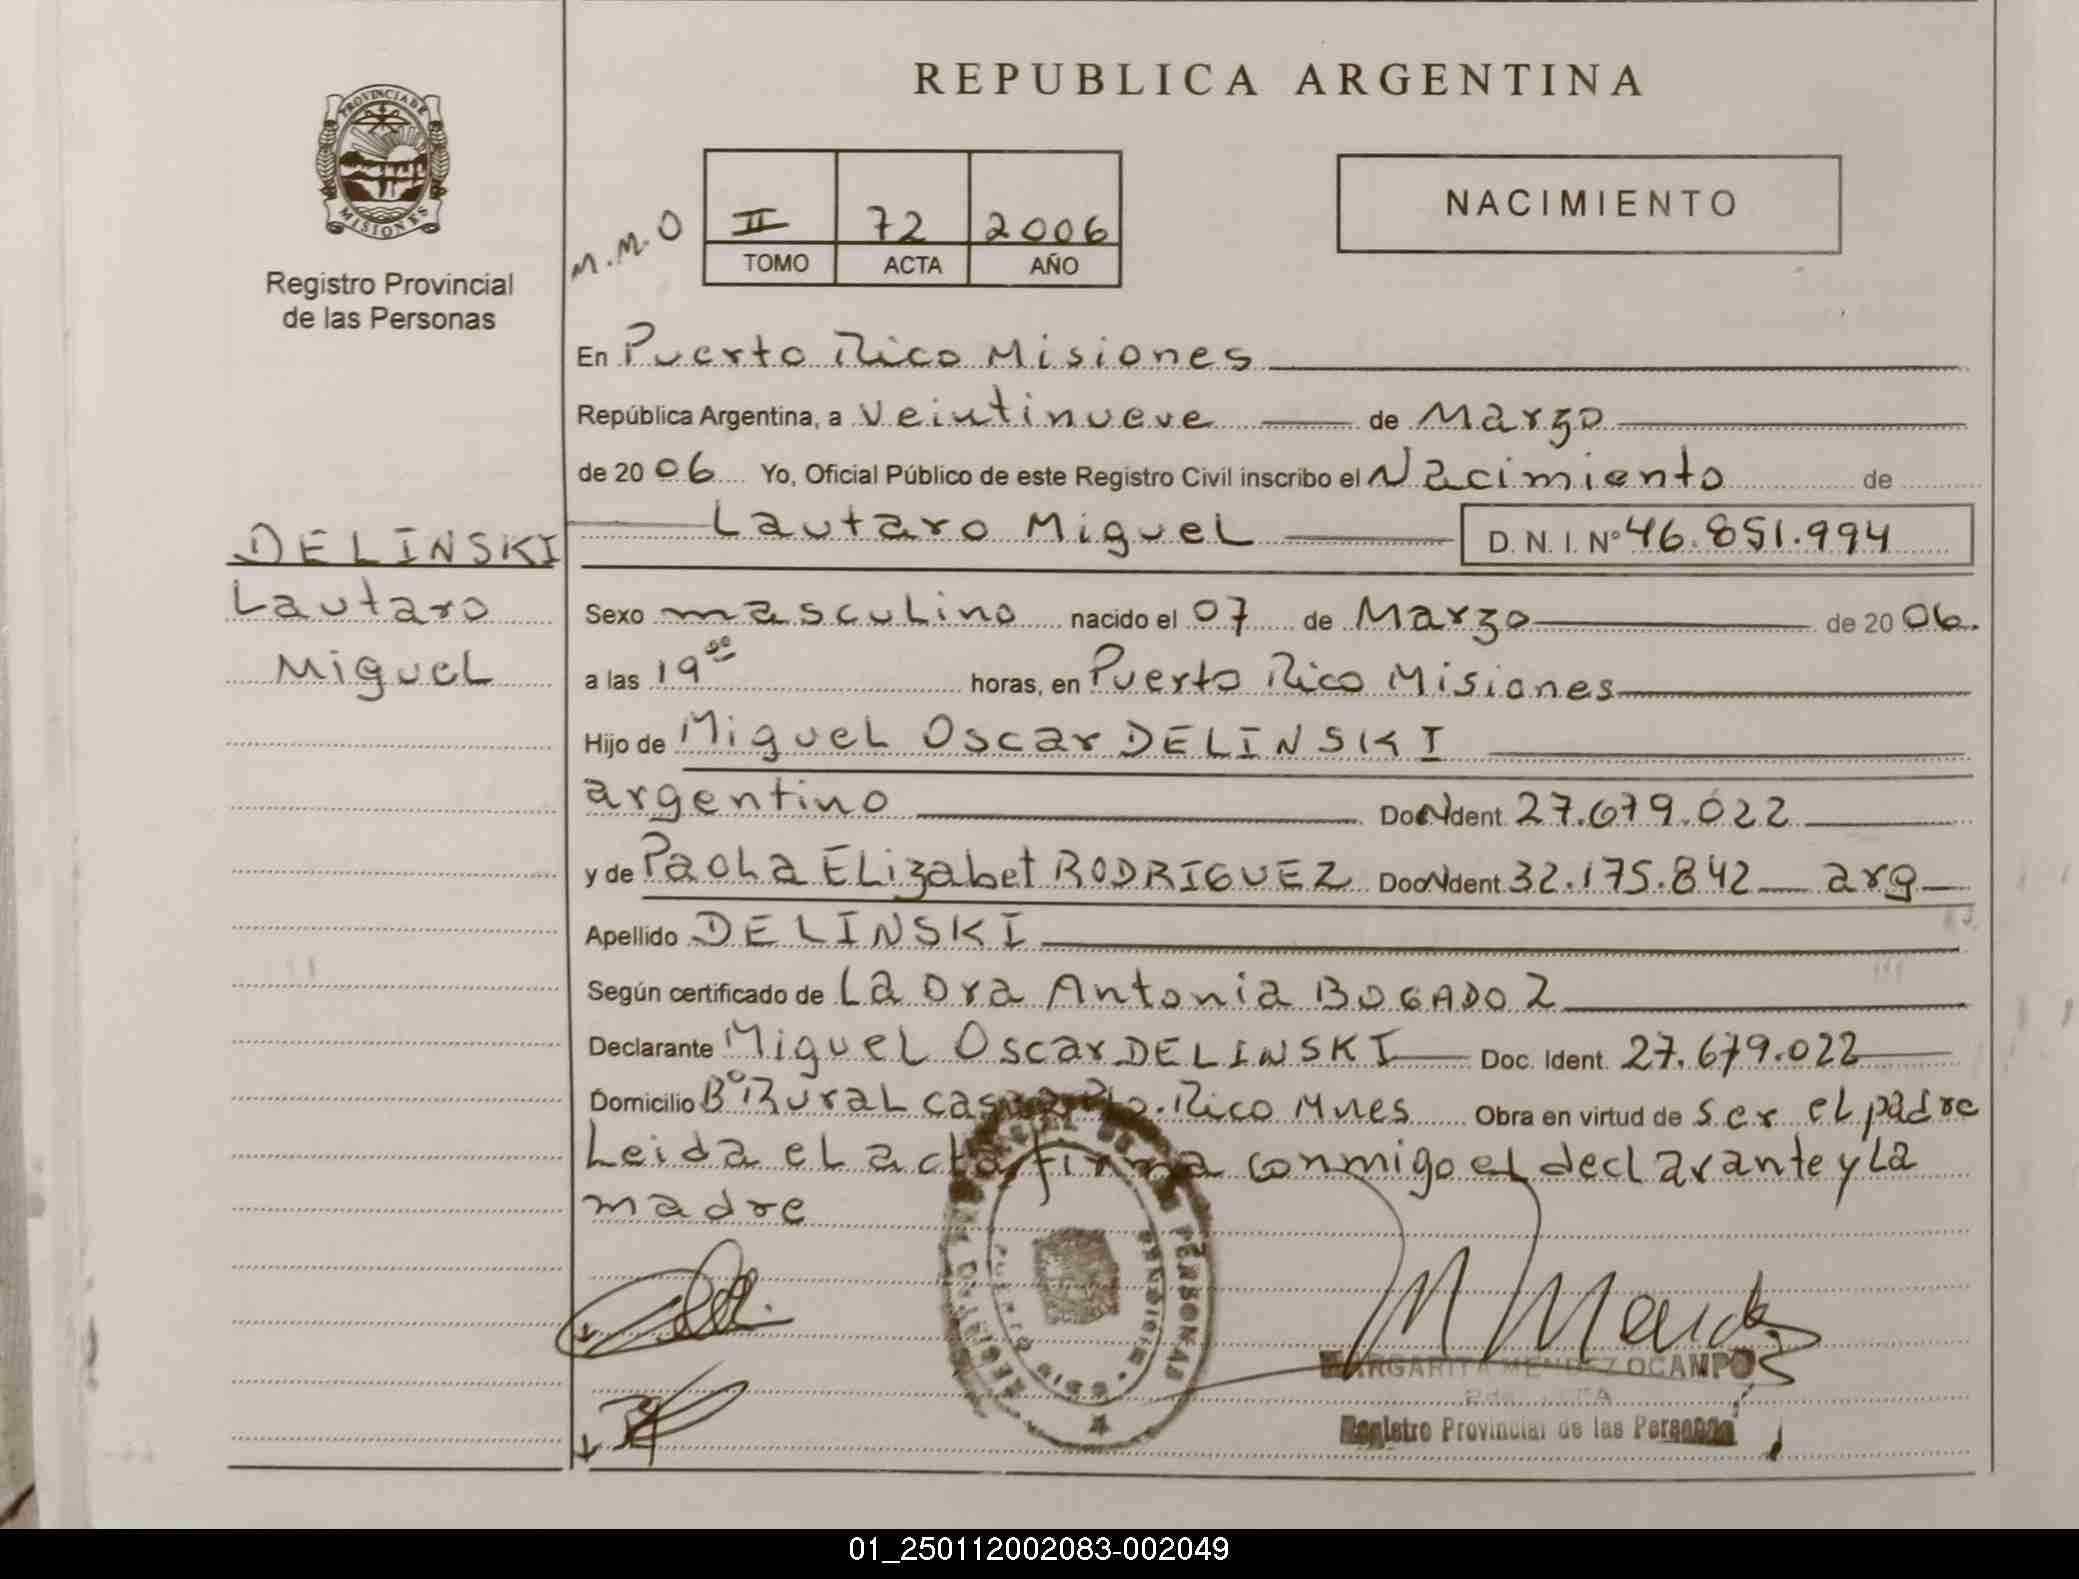 REPUBLICA ARGENTINA
PROVINCIA DE
MISIONES
Registro Provincial
de las Personas
M.M.O
II 72 2006
TOMO ACTA AÑO
NACIMIENTO
En Puerto Rico Misiones
República Argentina, a Veintinueve de Marzo
de 2006 Yo, Oficial Público de este Registro Civil inscribo el Nacimiento de
DELINSKI
Lautaro
Miguel
Lautaro Miguel D. N. I. Nº 46.851.994
Sexo masculino nacido el 07 de Marzo de 2006.
a las 19 00 horas, en Puerto Rico Misiones
Hijo de Miguel Oscar DELINSKI
argentino Ident. 27.679.022
y de Paola Elizabet RODRIGUEZ Ident. 32.175.842 arg
Apellido DELINSKI
Según certificado de La Dra Antonia BOGADO Z
Declarante Miguel Oscar DELINSKI Doc. Ident. 27.679.022
Domicilio Bº Rural Rico Mnes Obra en virtud de ser el padre
Leida el acta firma conmigo el declarante y La
madre
PERSONAS
PUERTO RICO
MARGARITA MENDEZ OCAMPO
Registro Provincial de las Personas
01_250112002083-002049